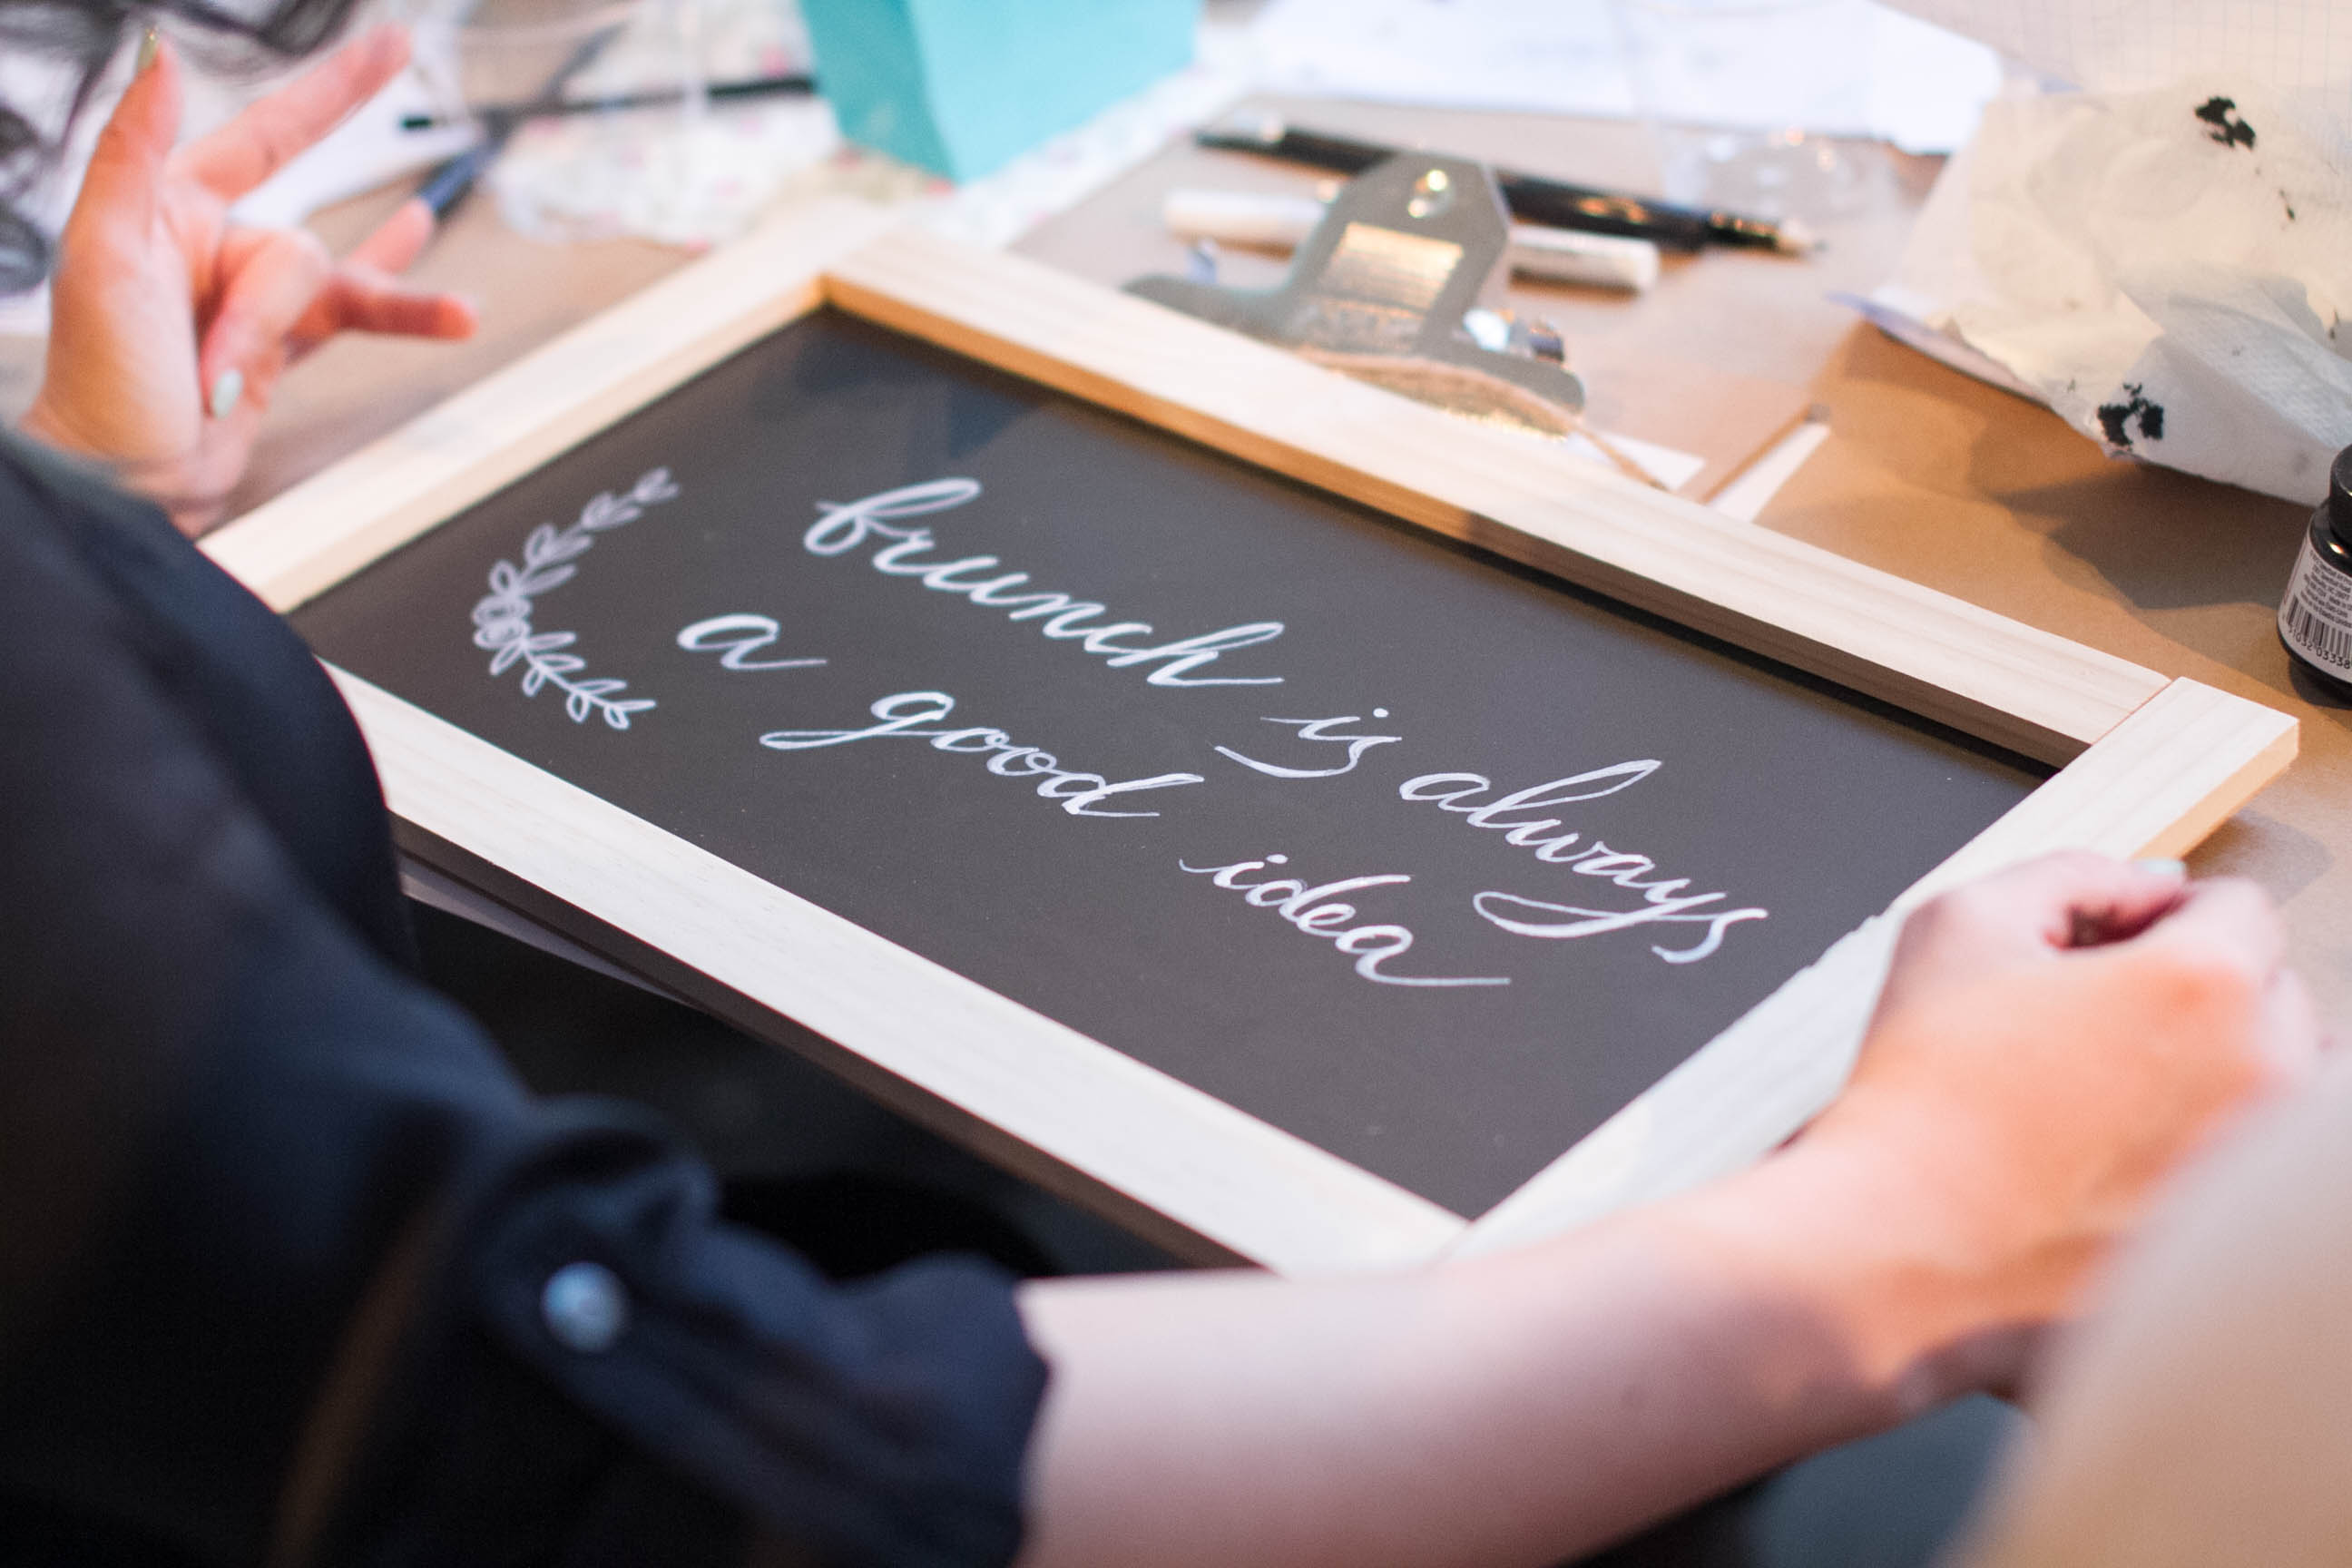 brunch is always
a good idea